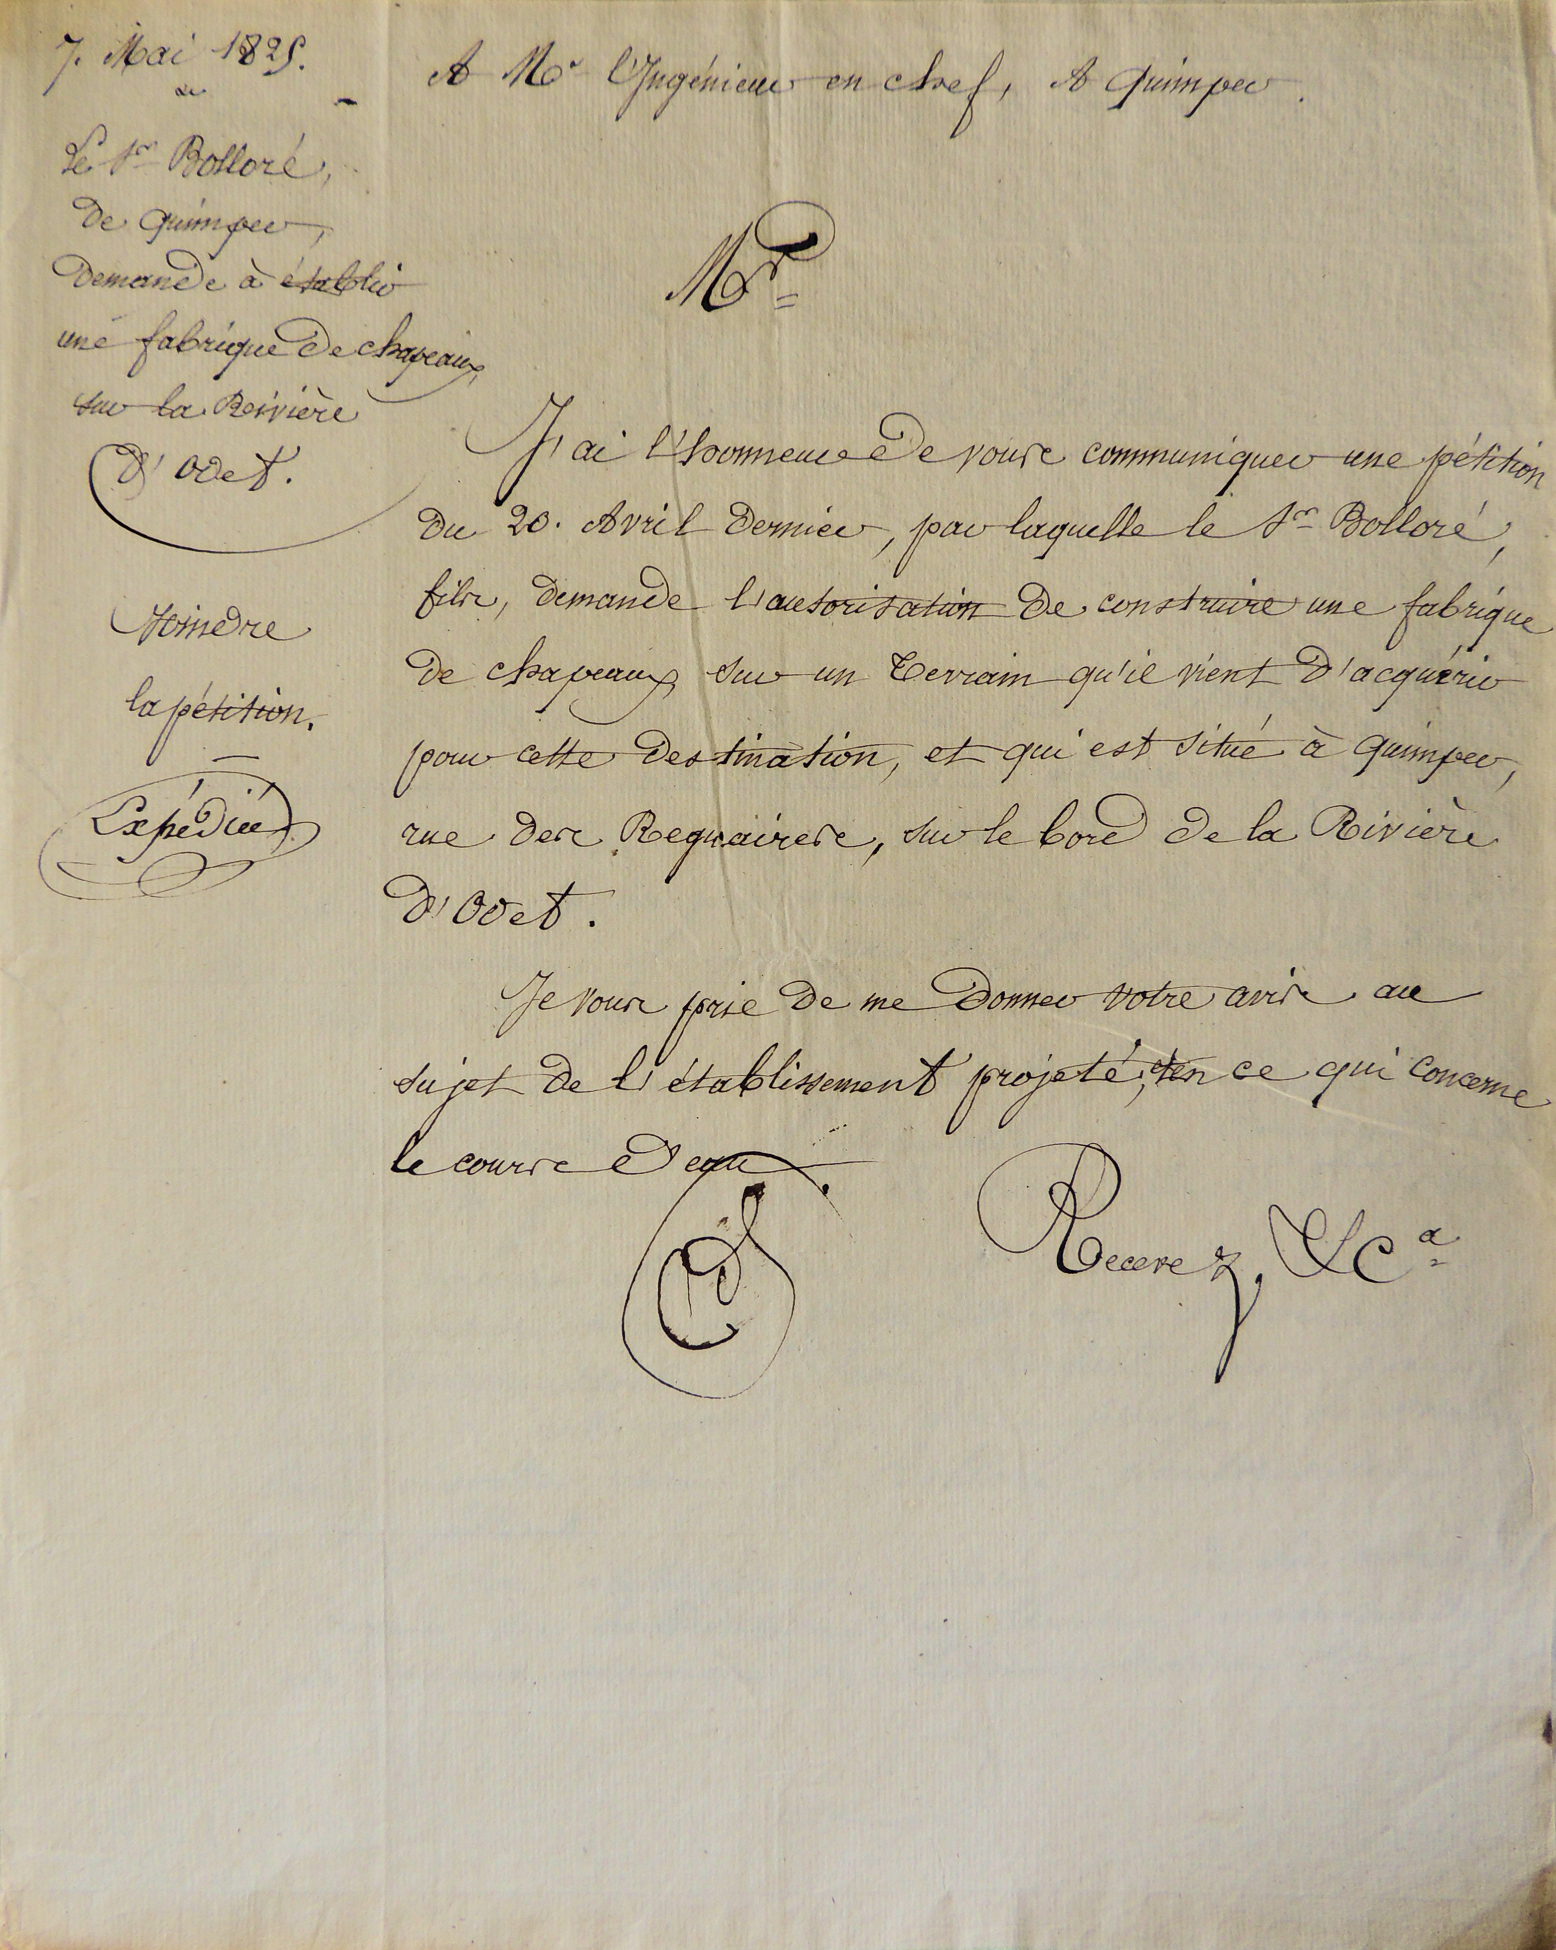 7. Mai 1825.
A Mr l'Ingénieur en chef, A Quimper.
Le Sr Bolloré,
de Quimper,
demande à établir
une fabrique de chapeaux,
sur la Rivière
d'Odet.
Joindre
la pétition.
Expédiée
Mr
J'ai l'honneur de vous communiquer une pétition
du 20. Avril dernier, par laquelle le Sr Bolloré,
fils, demande l'autorisation de construire une fabrique
de chapeaux, sur un terrain qu'il vient d'acquérir
pour cette destination, et qui est situé à Quimper,
rue des Reguaires, sur le bord de la Rivière
d'Odet.
Je vous prie de me donner votre avis au
sujet de l'établissement projeté, en ce qui concerne
le cours d'eau.
Recevez, &ca